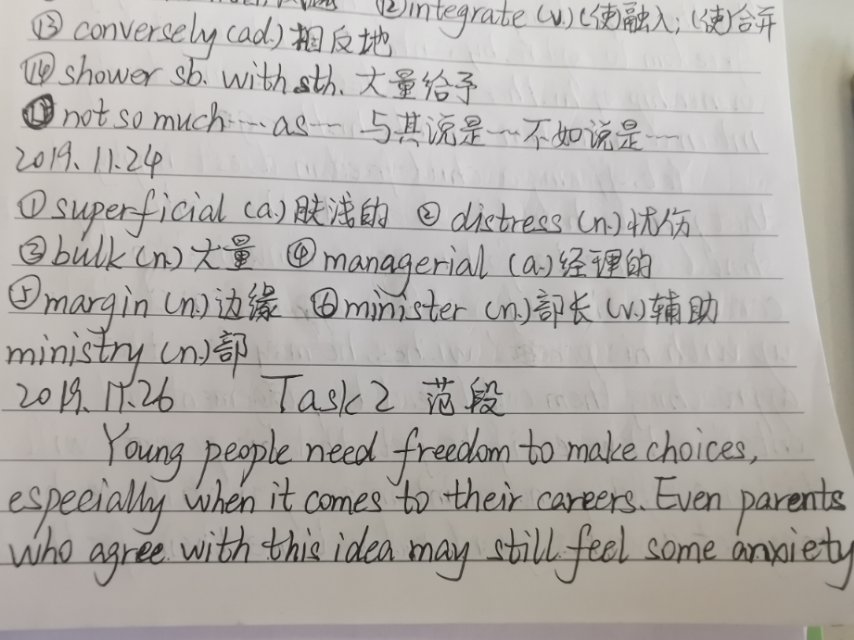 ⑫integrate (v.) (使)融入; (使)合并
⑬ conversely (ad.) 相反地
⑭ shower sb. with sth. 大量给予
⑮ not so much……as…… 与其说是……不如说是……
2019.11.24
① superficial (a.) 肤浅的 ② distress (n.) 忧伤
③ bulk (n.) 大量 ④ managerial (a.) 经理的
⑤ margin (n.) 边缘 ⑥ minister (n.) 部长 (v.) 辅助
ministry (n.) 部
2019.11.26 Task 2 范段
Young people need freedom to make choices,
especially when it comes to their careers. Even parents
who agree with this idea may still feel some anxiety